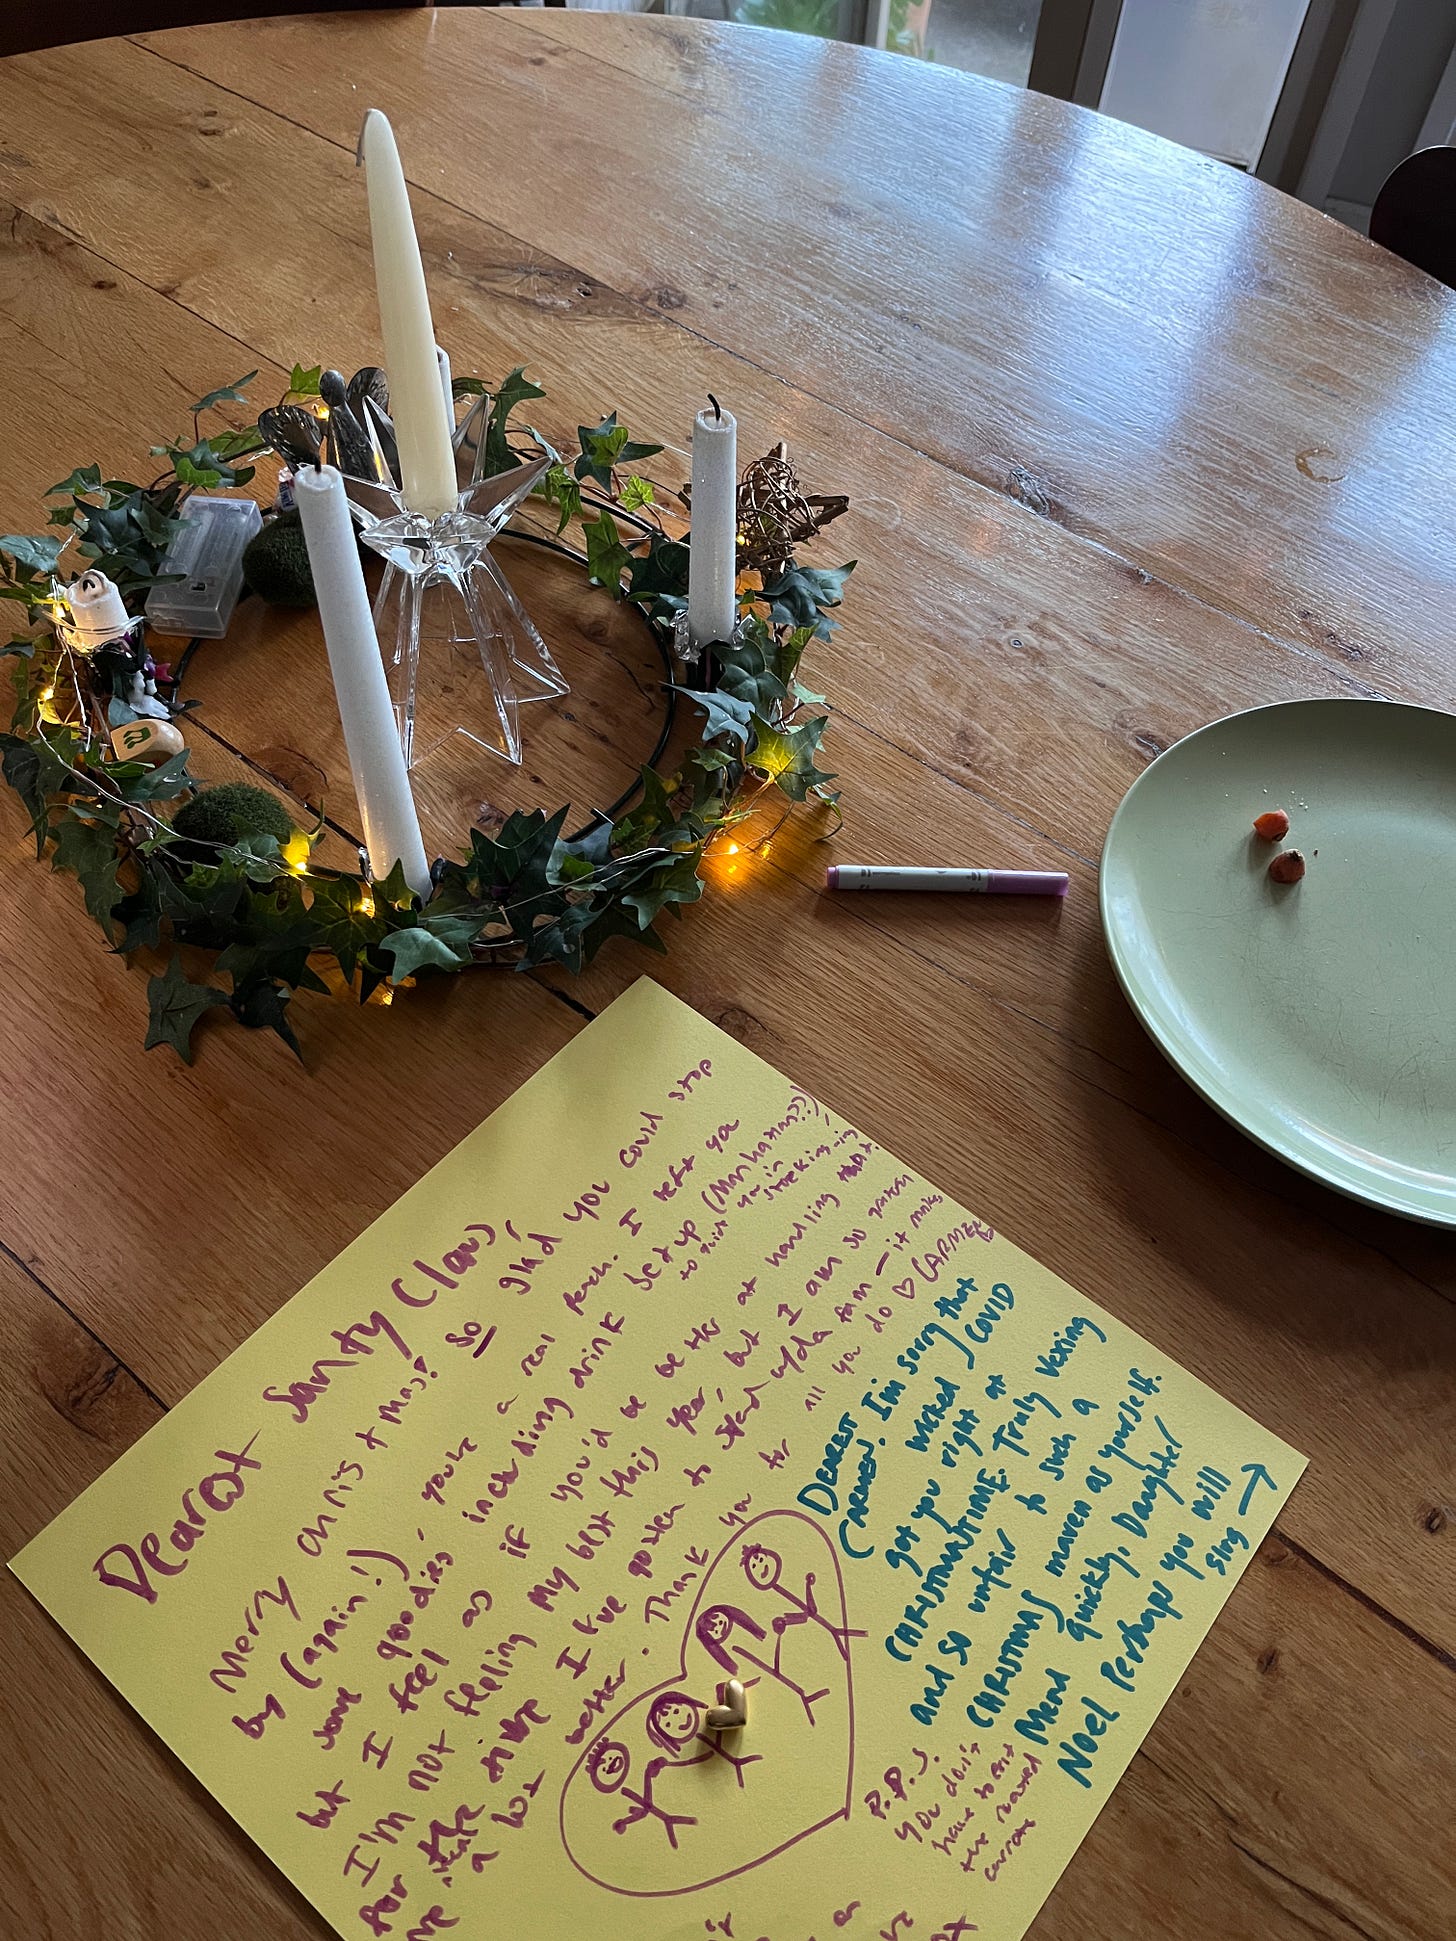 Dearest Santy Claus,
Merry Christmas! So glad you could stop
by (again!) you're a real peach. I left you
some goodies, including drink set up (Manhattan??)
to twist you in stocking-ing
but I feel as if you'd be better at handling that.
I'm not feeling my best this year, but I am so
for the time I've gotten to spend w/da fam — it makes
me a lot better. Thank you for all you do ♡ CARMEN
DEAREST
CARMEN. I'm sorry that
wicked COVID
got you right at
CHRISTMASTIME. Truly vexing
and so unfair to such a
CHRISTMAS maven as yourself.
Mend quickly, Daughter
Noel Perhaps you will
sing →
P.P.S.
you don't
have to eat
the roasted
carrots